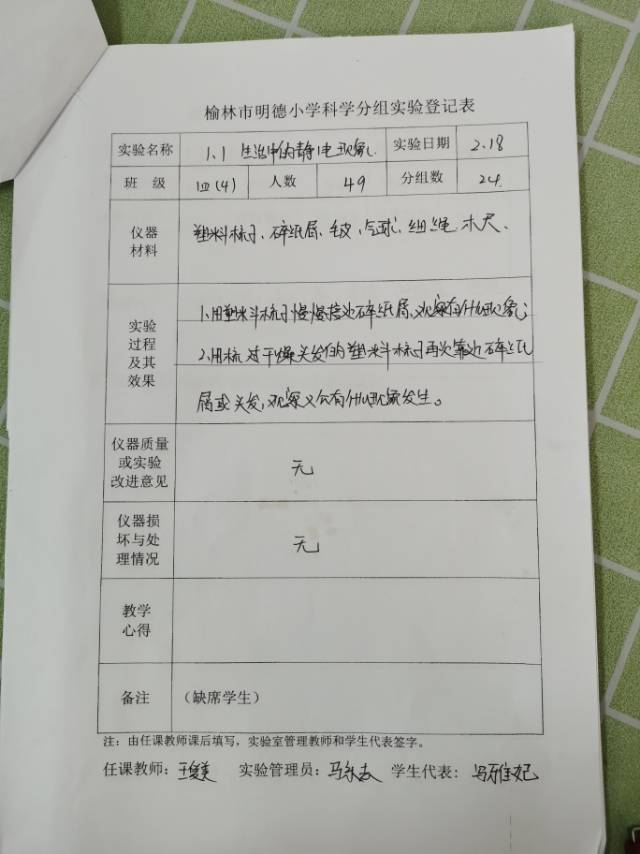 榆林市明德小学科学分组实验登记表
实验名称 1.1 生活中的静电现象 实验日期 2.18
班 级 四(4) 人数 49 分组数 24
仪器
材料
塑料梳子、碎纸屑、毛皮、气球、细绳、木尺、
实验
过程
及其
效果
1.用塑料梳子慢慢接近碎纸屑、观察有什么现象;
2.用梳过干燥头发的塑料梳子再次靠近碎纸
屑或头发,观察又会有什么现象发生。
仪器质量
或实验
改进意见
无
仪器损
坏与处
理情况
无
教学
心得
备注 (缺席学生)
注:由任课教师课后填写,实验室管理教师和学生代表签字。
任课教师: 实验管理员: 学生代表: